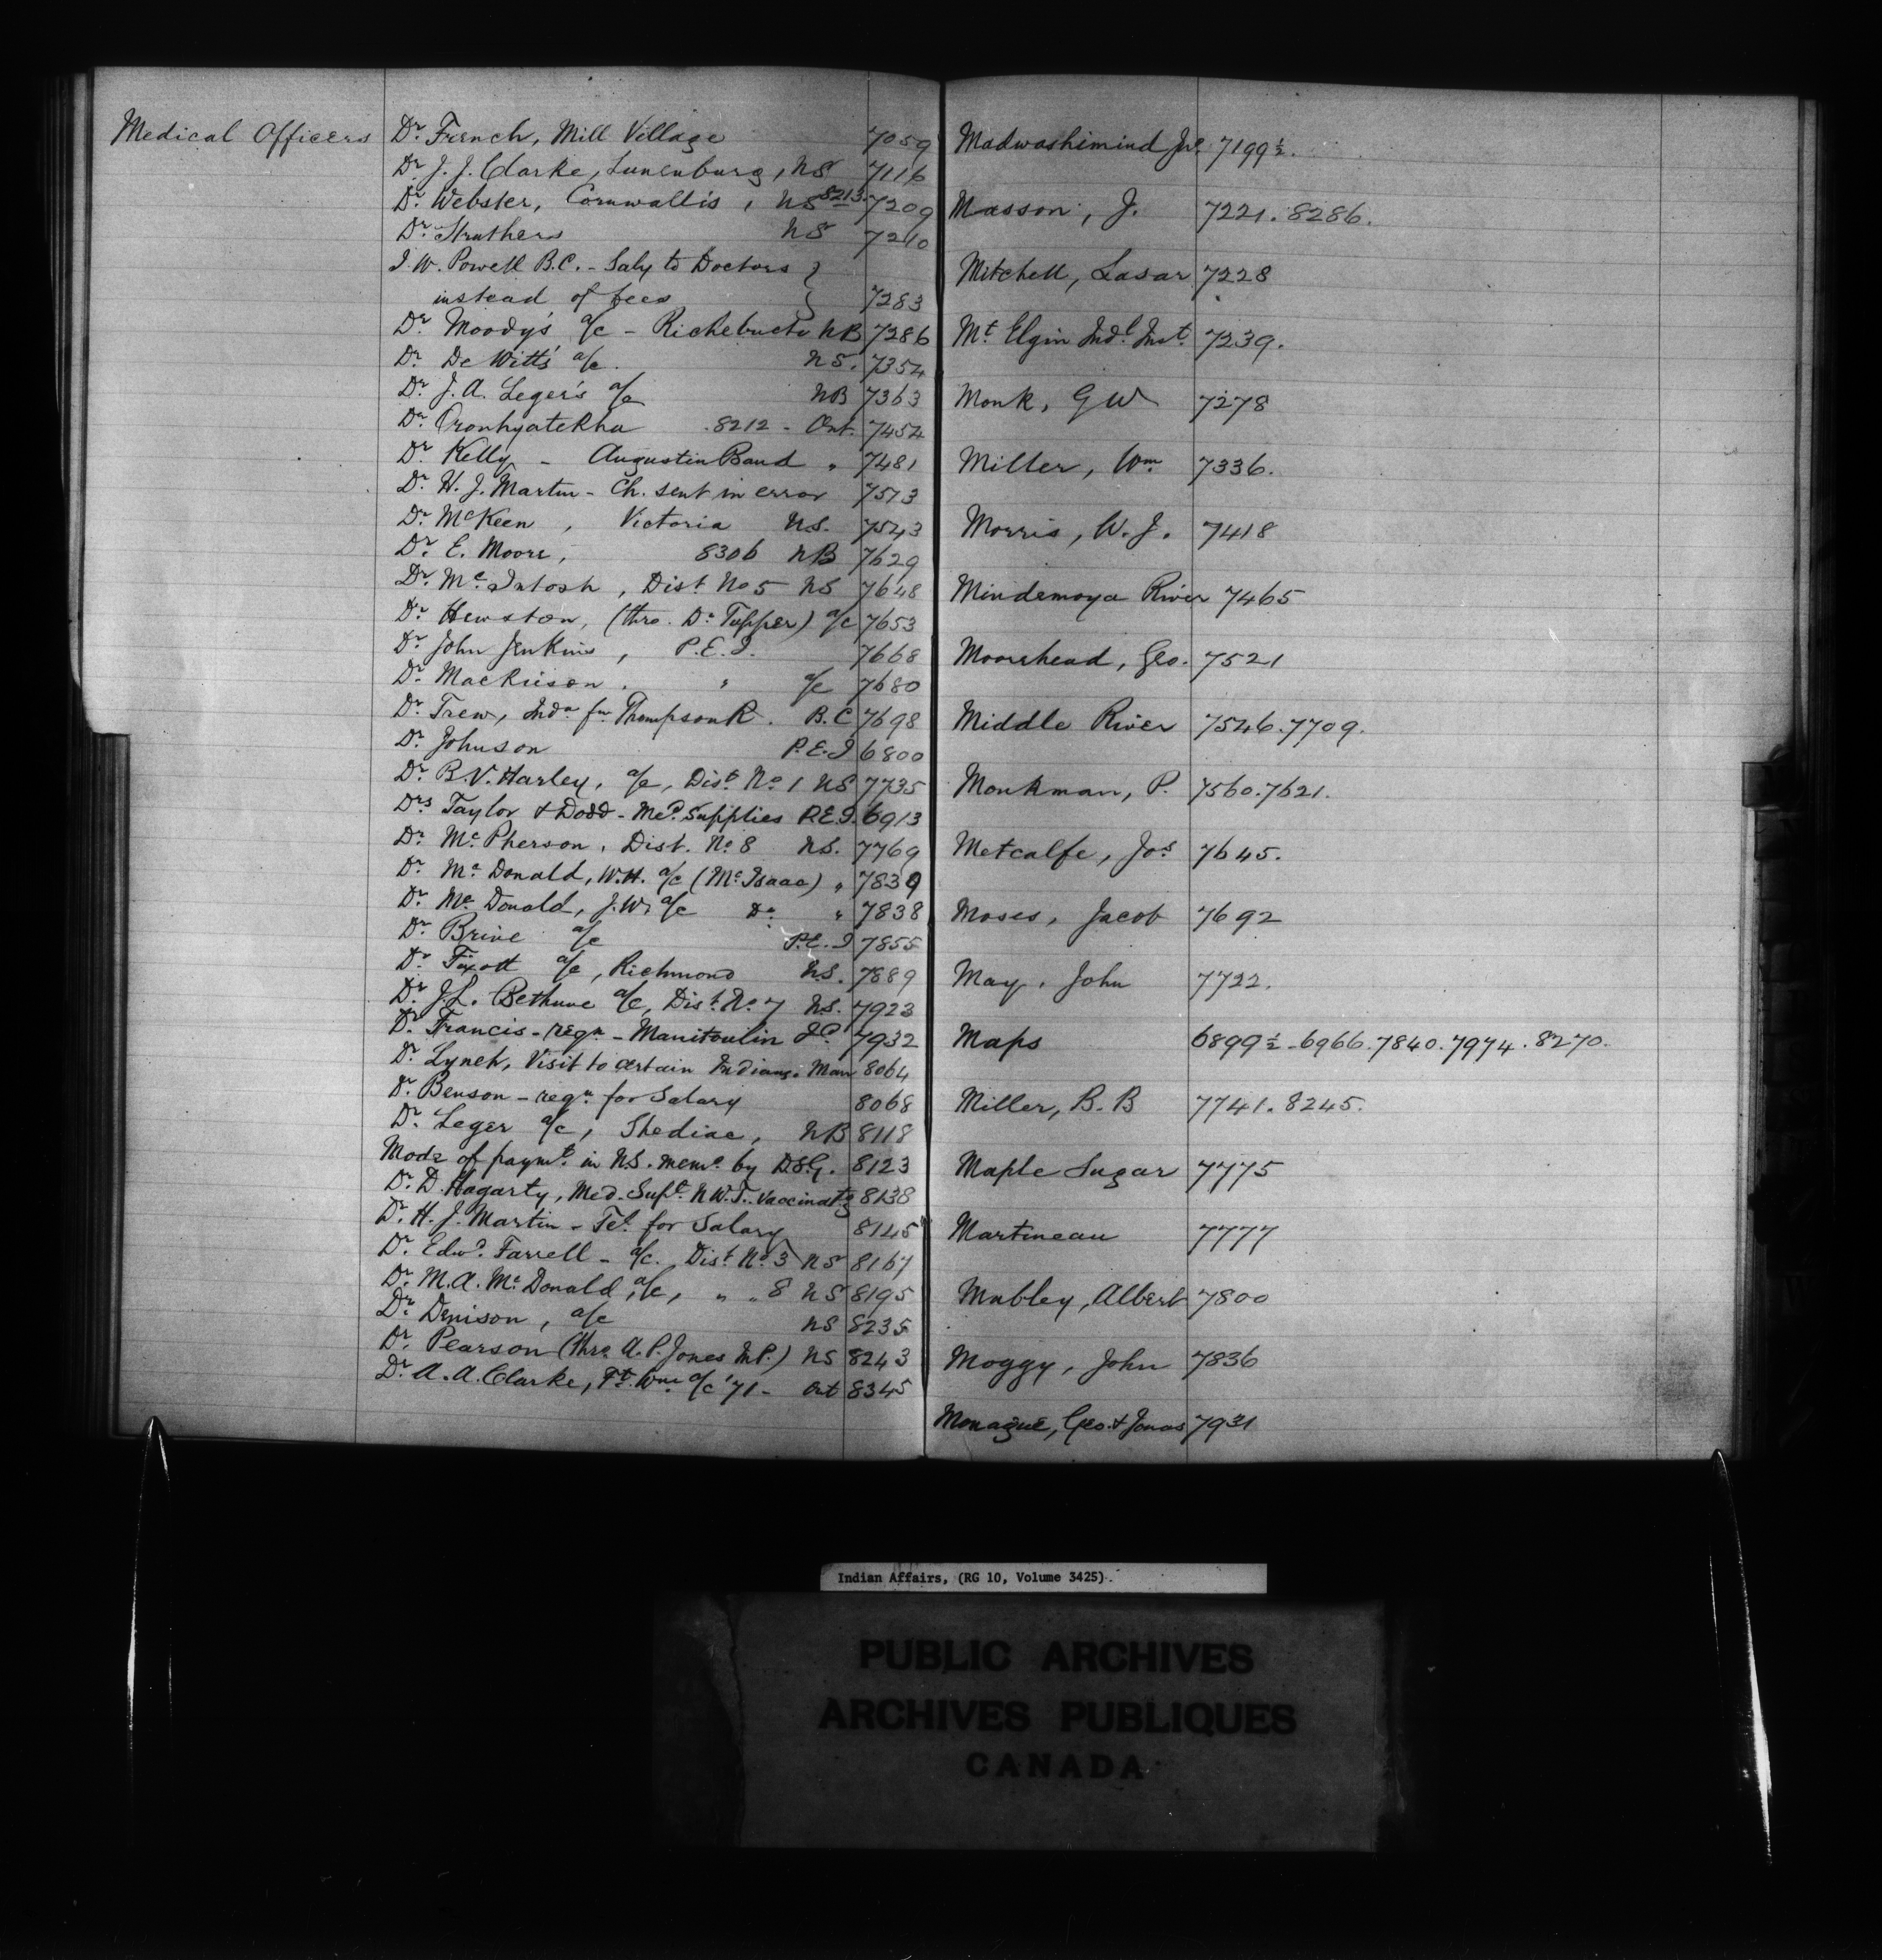 Medical Officers Dr. French, Mill Village 7059
Dr. J. J. Clarke, Lunenburg, NS 7116
Dr. Webster, Cornwallis, NS 8213. 7209
Dr. Struthers NS 7210
I. W. Powell B.C. - Saly to Doctors }
instead of fees } 7283
Dr. Moody's a/c - Richebucto NB 7286
Dr. De Witt's a/c. NS. 7354
Dr. J. A. Leger's a/c NB 7363
Dr. Oronhyatekha .8212 - Ont. 7454
Dr. Kelly - Augustin Band " 7481
Dr. H. J. Martin - Ch. sent in error 7513
Dr. McKeen, Victoria NS. 7543
Dr. E. Moore, 8306 NB 7629
Dr. McIntosh, Dist. No 5 NS 7648
Dr. Hewston, (thro. Dr. Tupper) a/c 7653
Dr. John Jenkins, P.E.I. 7668
Dr. Mackieson. " a/c 7680
Dr. Trew, Inda. fm Thompson R. B.C 7698
Dr. Johnson P.E.I 6800
Dr. B. V. Harley, a/c, Dist. No 1 NS 7735
Drs Taylor & Dodd - Med. Supplies P.E.I. 6913
Dr. McPherson, Dist. No. 8 NS. 7769
Dr. McDonald, W.H. a/c (McIsaac) " 7839
Dr. McDonald, J.W. a/c Do. " 7838
Dr. Brine a/c P.E.I 7855
Dr. Fixott a/c, Richmond NS. 7889
Dr. J.L. Bethune a/c, Dist. No. 7 NS. 7923
Dr. Francis - regn - Manitoulin Id. 7932
Dr. Lynch, Visit to certain Indians. Man 8064
Dr. Benson - regn. for Salary 8068
Dr. Leger a/c, Shediac, NB 8118
Mode of paymt. in N.S. memo. by D.S.G. 8123
Dr. D. Hagarty, Med. Supt. N.W.T. Vaccinatg 8138
Dr. H. J. Martin - Tel. for Salary 8145
Dr. Edwd. Farrell - a/c. Dist No. 3 NS 8167
Dr. M.A. McDonald, a/c, " " 8 NS 8195
Dr. Denison, a/c NS 8235
Dr. Pearson (thro. A. P. Jones M.P.) NS 8243
Dr. A. A. Clarke, Ft. Wm. a/c '71 - Ont 8345
Madwashimind Jno. 7199½.
Masson, J. 7221. 8286.
Mitchell, Lasar 7228
Mt. Elgin Indl. Inst. 7239.
Monk, G W 7278
Miller, Wm. 7336.
Morris, W. J. 7418
Mindemoya River 7465
Moorehead, Geo. 7521
Middle River 7546. 7709.
Monkman, P. 7560. 7621.
Metcalfe, Jos 7645.
Moses, Jacob 7692
May, John 7722.
Maps 6899½ - 6966. 7840. 7974. 8270.
Miller, B. B 7741. 8245.
Maple Sugar 7775
Martineau 7777
Mabley, Albert 7800
Moggy, John 7836
Monague, Geo. & Jonas 7931
Indian Affairs, (RG 10, Volume 3425)
PUBLIC ARCHIVES
ARCHIVES PUBLIQUES
CANADA